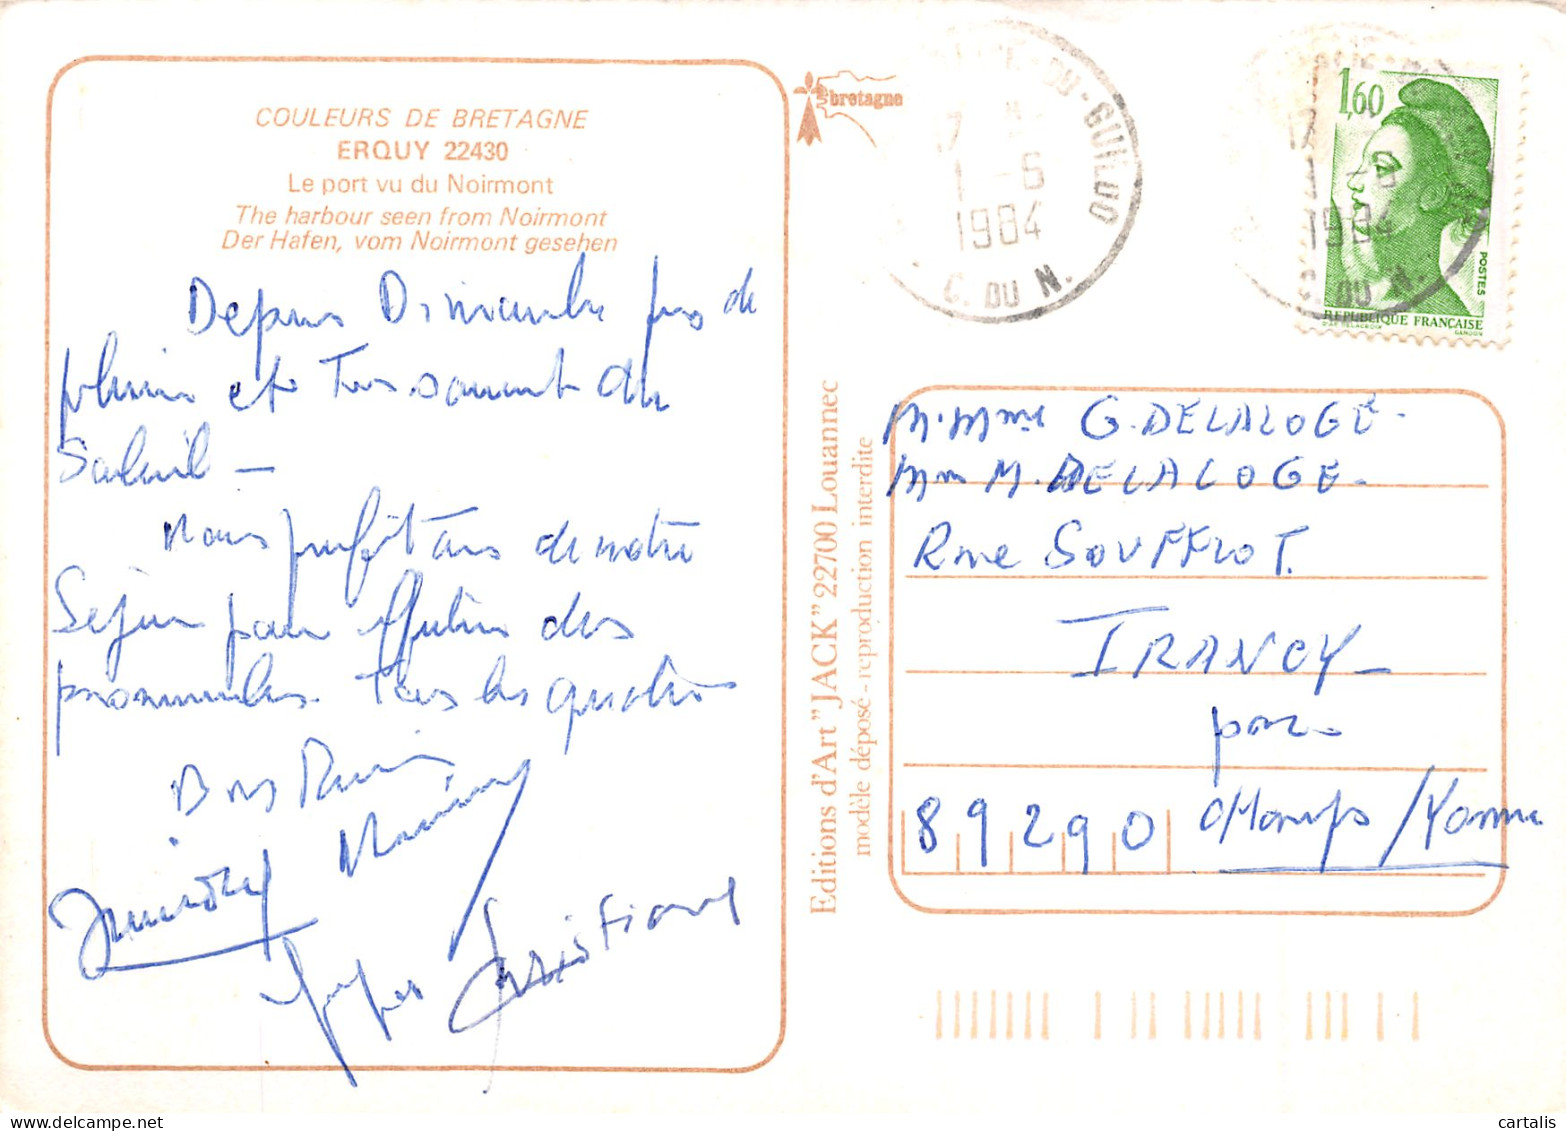 COULEURS DE BRETAGNE
ERQUY 22430
Le port vu du Noirmont
The harbour seen from Noirmont
Der Hafen, vom Noirmont gesehen
Depuis Dimanche pas de
pluie et Tres souvent du
Soleil -
Nous profitons de notre
Séjour pour effectuer des
promenades. Tous les quatre
Bons Baisers
Christiane
bretagne
Editions d'Art "JACK" 22700 Louannec
modèle déposé - reproduction interdite
DU-GUILDO
17 H
1 -6
1984
C. DU N.
1,60
17
1 -6
1984
C. DU N.
POSTES
REPUBLIQUE FRANÇAISE
D'AP. DELACROIX
GANDON
M. Mme G. DELALOGE.
Mme M. DELALOGE.
Rue SOUFFLOT.
IRANCY
par
89290 Champs/Yonne
cartalis